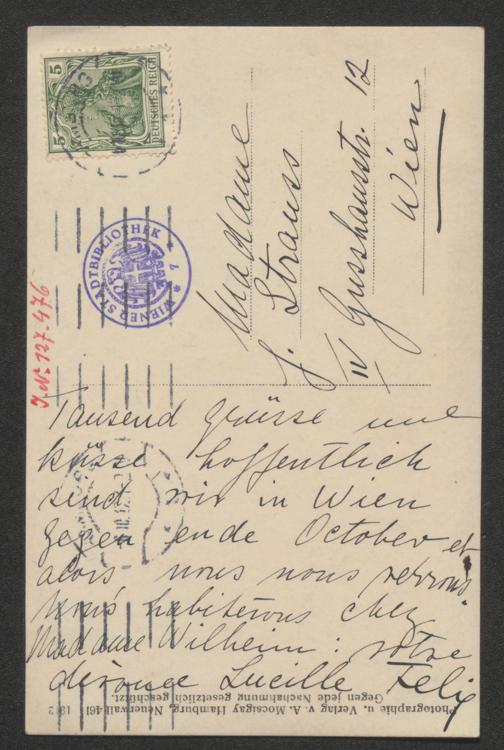 5
DEUTSCHES REICH
WIENER STADTBIBLIOTHEK
J. No. 127.476
Madame
J. Strauss
IV Gusshausstr. 12
Wien
Tausend grüsse und
küsse hoffentlich
sind wir in Wien
gegen ende October et
alors nous nous verrons.
Nous habiterons chez
Madame Wilheim: votre
Lucille Felix
Photographie u. Verlag v. A. Mocsigay Hamburg, Neuerwall 46I 1912
Gegen jede Nachahmung gesetzlich geschützt.